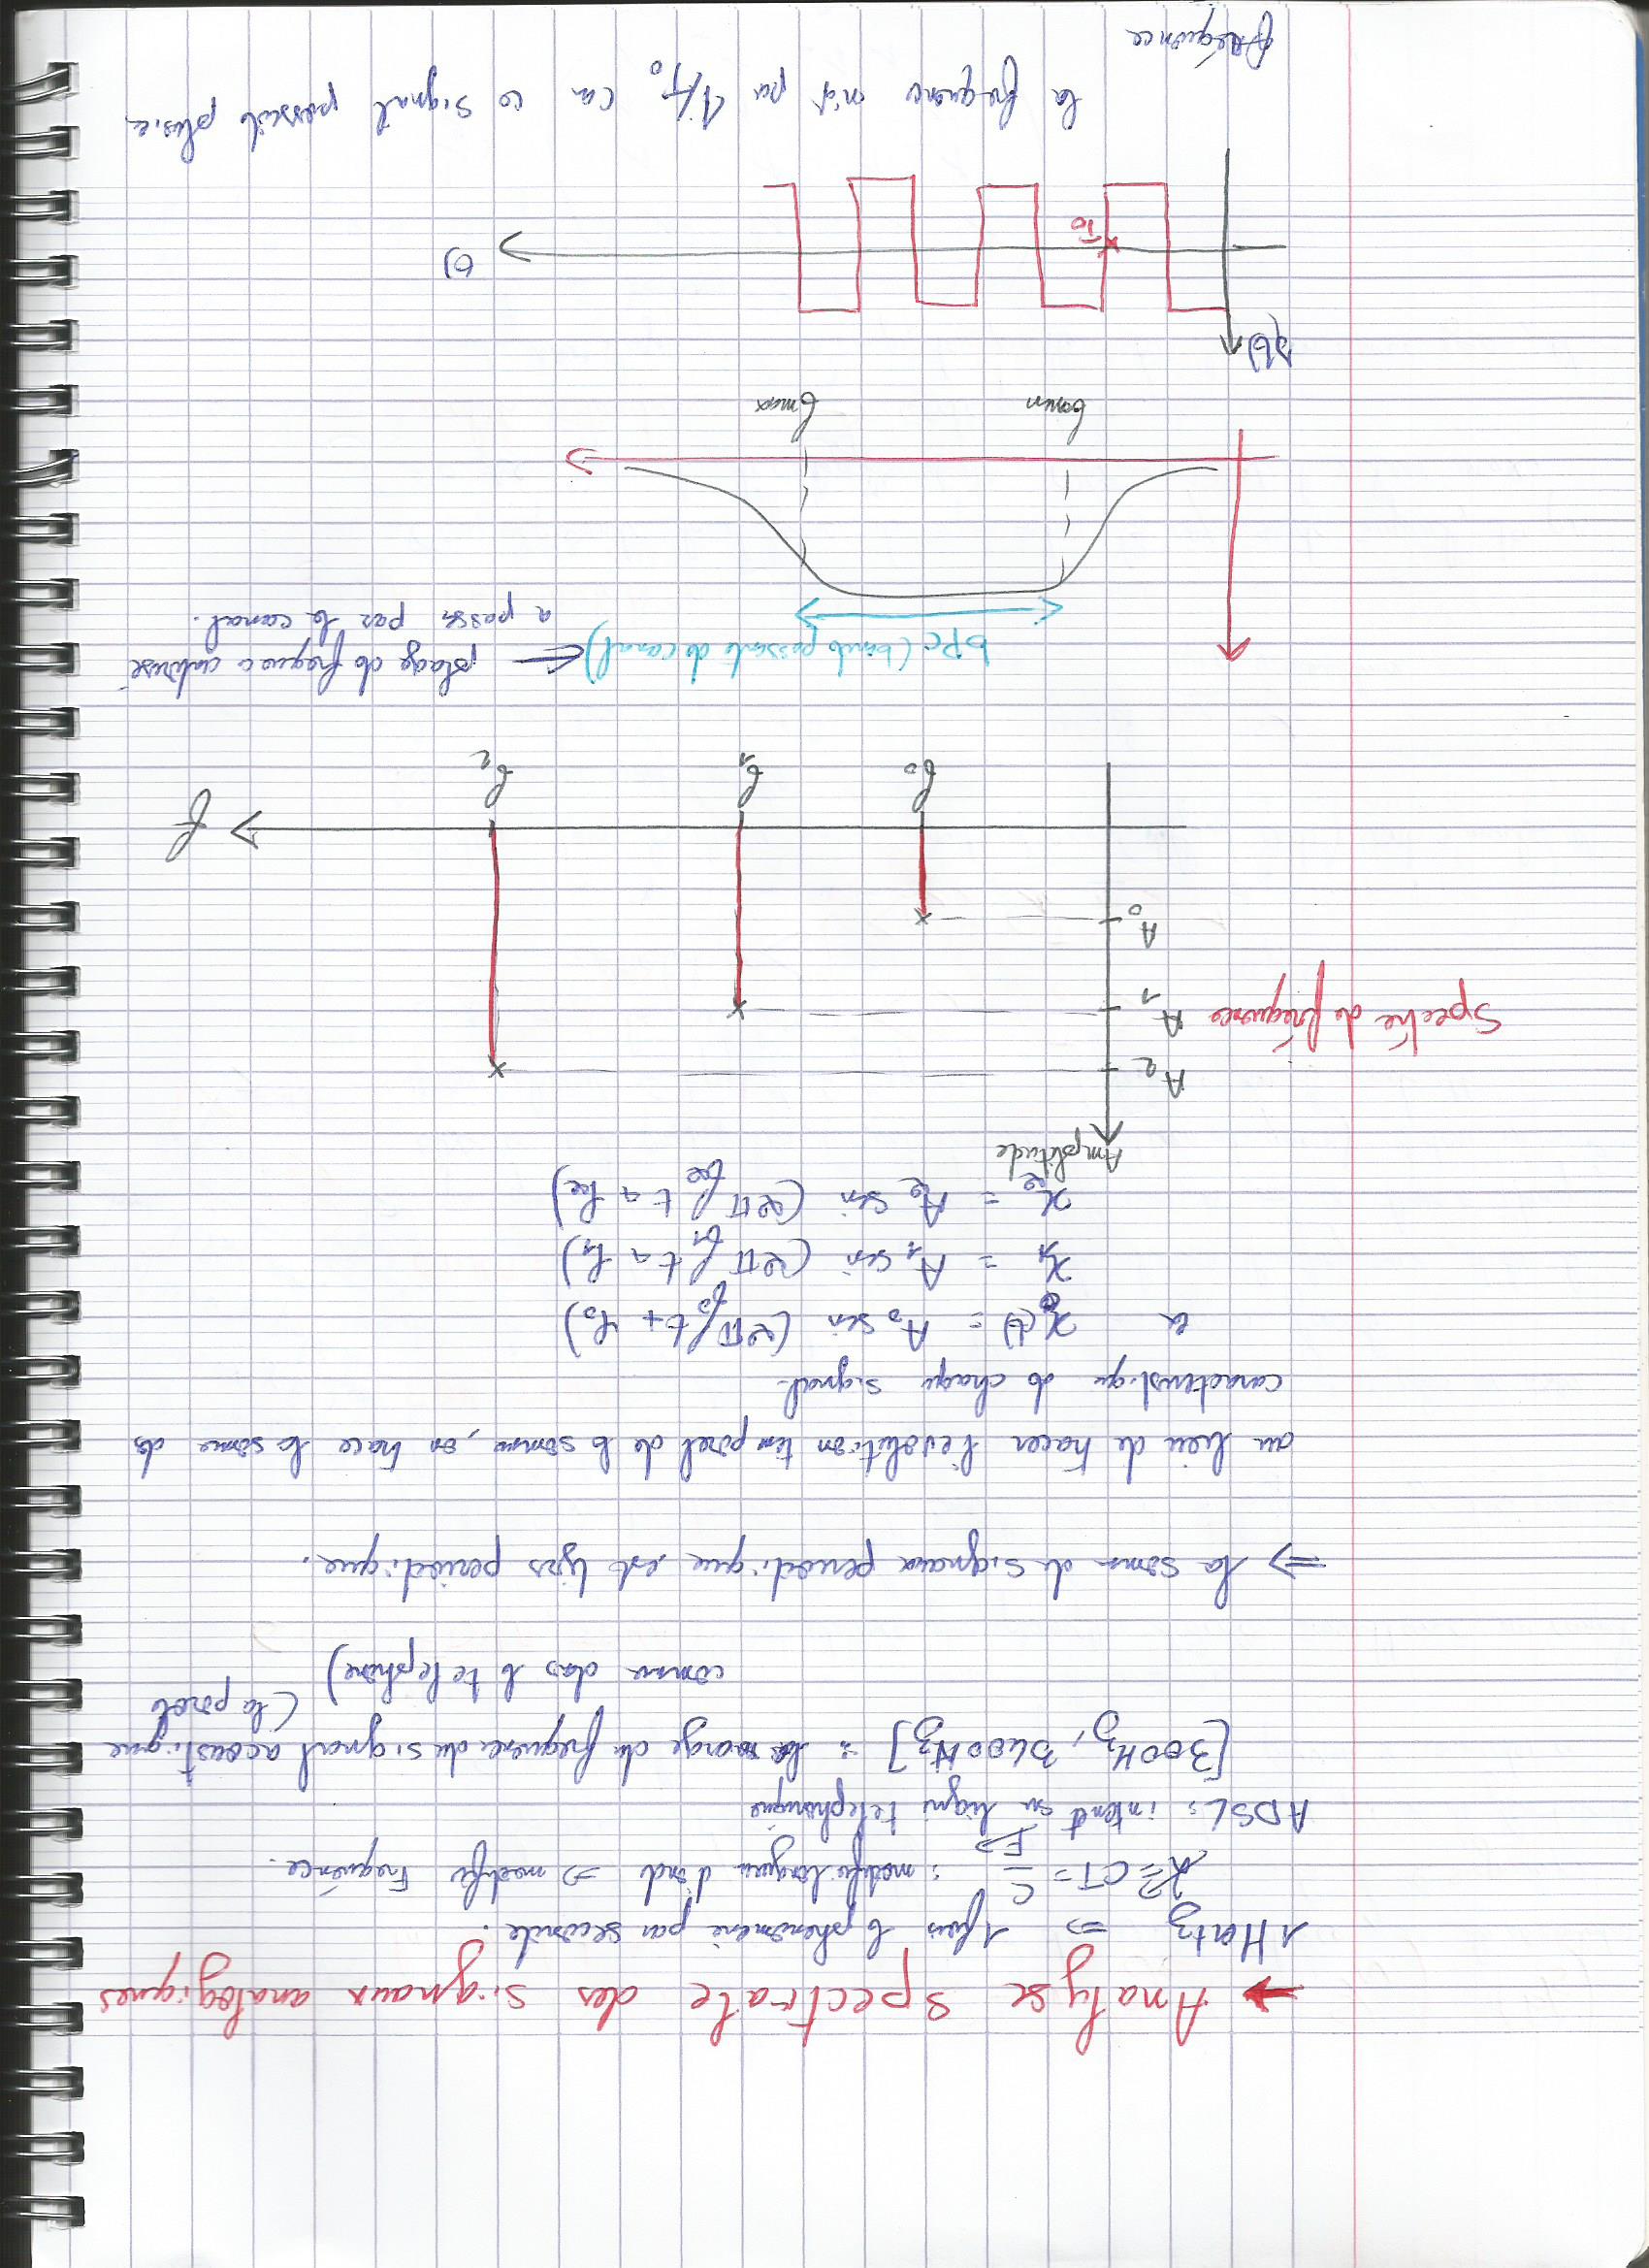 Analyse spectrale des signaux analogiques
1 Hertz ⇒ 1 fois le phenomene par seconde.
λ = CT = C/F : modifie longueur d'onde ⇒ modifie Frequence.
ADSL : internet sur ligne telephonique
[300Hz, 3400Hz] : la marge du frequence du signal acoustique (la parole
comme dans le telephone)
⇒ la somme de signaux periodique est tjrs periodique.
au lieu de tracer l'evolution temporel de la somme, on trace la somme des
caracteristique de chaque signal.
x0(t) = A0 sin (2π f0 t + φ0)
x1 = A1 sin (2π f1 t + φ1)
x2 = A2 sin (2π f2 t + φ2)
Amplitude
A2
A1
Spectre de fréquence
A0
f0 f1 f2 f
bPC (bande passante de canal) ← plage de frequence autorisé
a passer par le canal.
fmin fmax
s(t)
T0
t)
la frequence n'est pas 1/T0 car ce signal possede plusieurs
fréquence